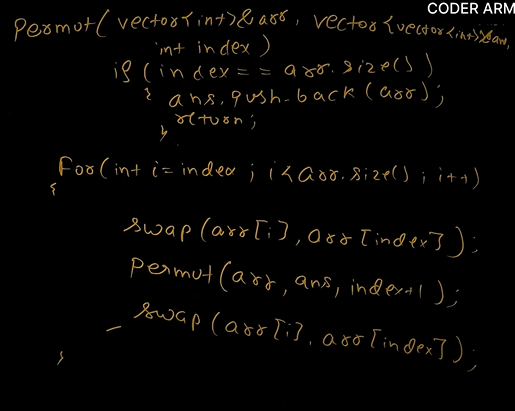 CODER ARM
permut( vector<int>&arr, vector<vector<int>&an,
int index)
if (index == arr.size()
{ ans.push-back(arr);
return;
}
For(int i=index ; i<arr.size() ; i++)
{
swap(arr[i], arr[index]);
permut(arr, ans, index+1);
– swap(arr[i], arr[index]);
}